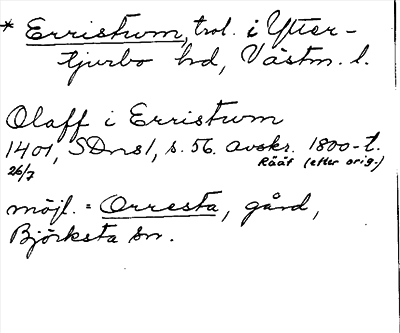 * Erristum, trol. i Ytter-
tjurbo hd, Västm. l.
Olaff i Erristwm
1401, SDns1, s. 56. Avskr. 1800-t.
26/7 Rääf (efter orig.)
möjl. = Orresta, gård,
Björksta sn.